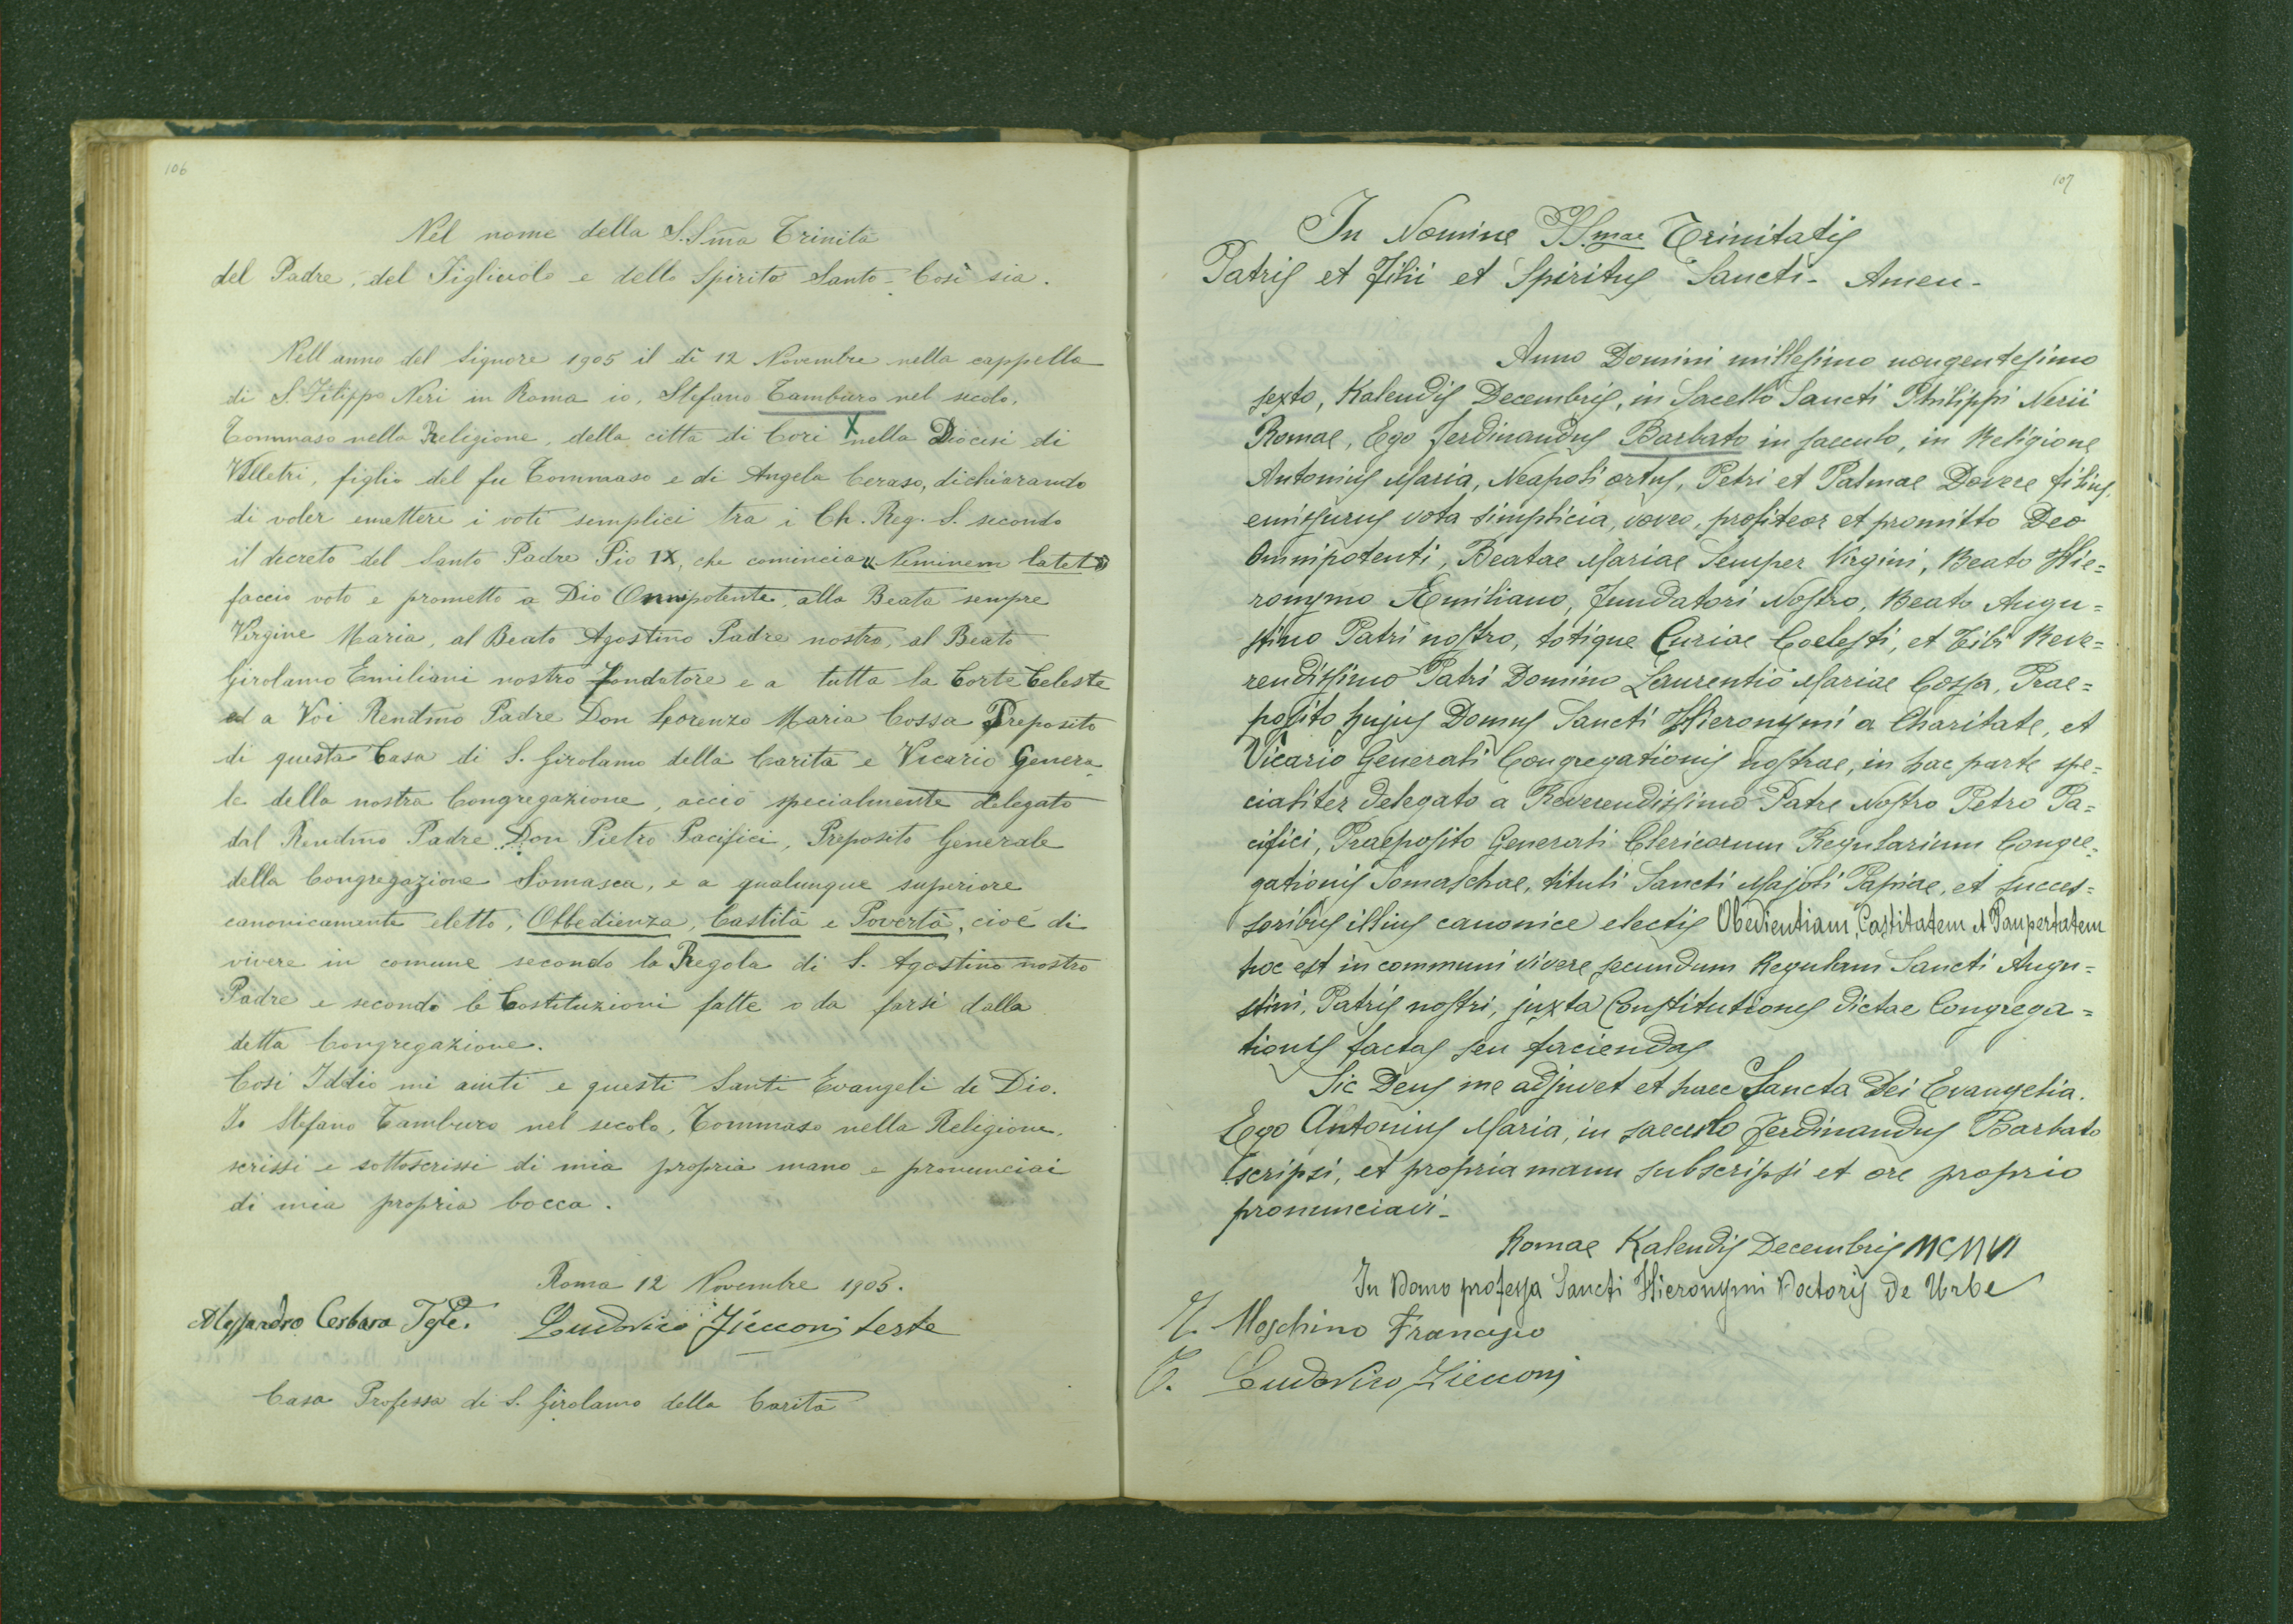 106
Nel nome della S.Sma Trinità
del Padre, del Figliuolo e dello Spirito Santo - Così sia.
Nell anno del Signore 1905 il dì 12 Novembre nella cappella
di S. Filippo Neri in Roma io, Stefano Tamburo nel secolo,
Tommaso nella Religione, della città di Cori X nella Diocesi di
Velletri, figlio del fu Tommaso e di Angela Ceraso, dichiarando
di voler emettere i voti semplici tra i Ch. Reg. S. secondo
il decreto del Santo Padre Pio IX, che comincia « Neminem latet »
faccio voto e prometto a Dio Onnipotente, alla Beata sempre
Virgine Maria, al Beato Agostino Padre nostro, al Beato
Girolamo Emiliani nostro fondatore e a tutta la Corte Celeste
ed a Voi Rendmo Padre Don Lorenzo Maria Cossa Preposito
di questa Casa di S. Girolamo della Carità e Vicario Genera
le della nostra Congregazione, acciò specialmente delegato
dal Rendmo Padre Don Pietro Pacifici, Preposito Generale
della Congregazione Somasca, e a qualunque superiore
canonicamente eletto, Obbedienza, Castità e Povertà, cioè di
vivere in comune secondo la Regola di S. Agostino nostro
Padre e secondo le Costituzioni fatte o da farsi dalla
detta Congregazione.
Così Iddio mi aiuti e questi Santi Evangeli di Dio.
Io Stefano Tamburo nel secolo, Tommaso nella Religione,
scrissi e sottoscrissi di mia propria mano e pronunciai
di mia propria bocca.
Roma 12 Novembre 1905.
Alessandro Cerbara Tste. Ludovico Zicconj teste
Casa Professa di S. Girolamo della Carità
107
In Nomine SS.mae Trinitatis
Patris et Filii et Spiritus Sancti - Amen -
Anno Domini millesimo nongentesimo
sexto, Kalendis Decembris, in Sacello Sancti Philippi Nerii
Romae, Ego Ferdinandus Barbato in saeculo, in Religione
Antonius Maria, Neapoli ortus, Petri et Palmae Dovere filius,
emissurus vota simplicia, voveo, profiteor et promitto Deo
Omnipotenti, Beatae Mariae Semper Virgini, Beato Hie=
ronymo Aemiliano, Fundatori Nostro, Beato Augu=
stino Patri nostro, totique Curiae Coelesti, et Tibi Reve=
rendissimo Patri Domino Laurentio Mariae Cossa, Prae=
posito hujus Domus Sancti Hieronymi a Charitate, et
Vicario Generali Congregationis nostrae, in hac parte spe=
cialiter delegato a Reverendissimo Patre Nostro Petro Pa=
cifici, Praeposito Generali Clericorum Regularium Congre=
gationis Somaschae, tituli Sancti Majoli Papiae, et succes=
soribus illius canonice electis Obedientiam, Castitatem et Paupertatem
hoc est in communi vivere secundum Regulam Sancti Augu=
stini, Patris nostri, juxta Constitutiones dictae Congrega=
tionis factas seu faciendas
Sic Deus me adjuvet et haec Sancta Dei Evangelia.
Ego Antonius Maria, in saeculo Ferdinandus Barbato
scripsi, et propria manu subscripsi et ore proprio
pronunciavi -
Romae Kalendis Decembris MCMVI
In Domo professa Sancti Hieronymi Doctoris de Urbe
T. Moschino Francesco
T. Ludovico Zicconj